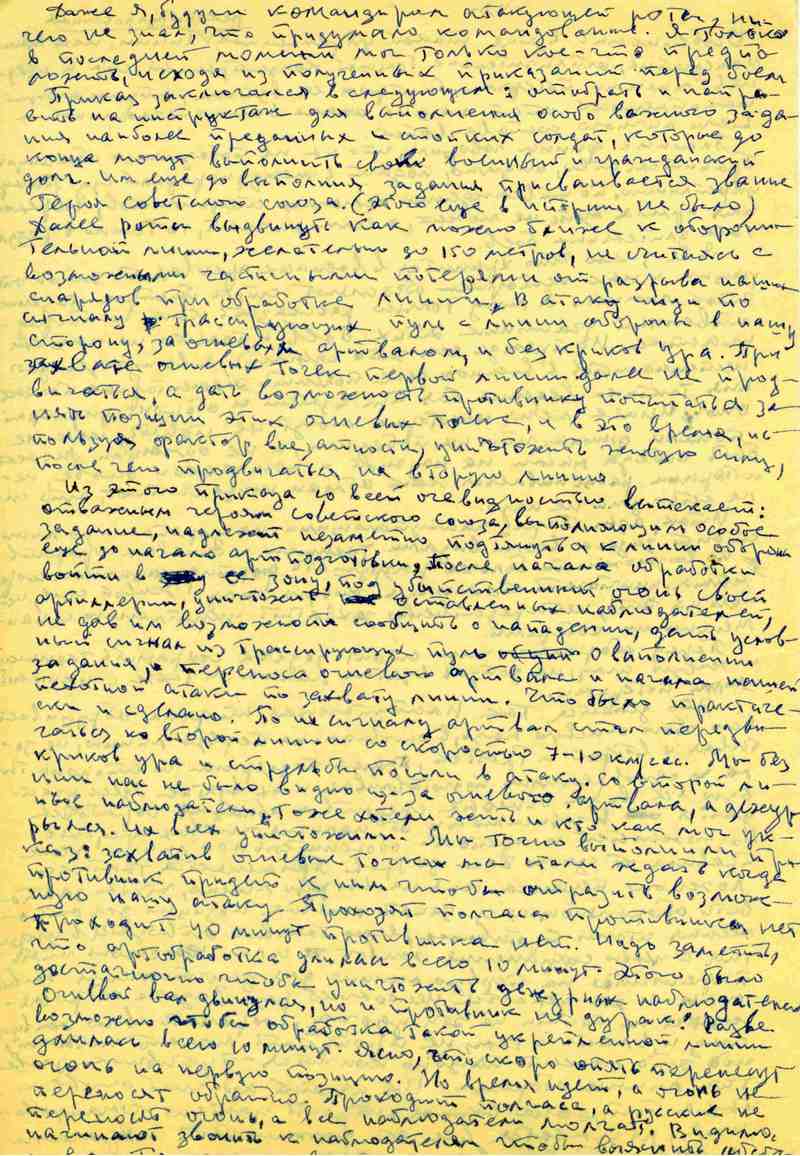 Даже я, будучи командиром атакующей роты, ни-
чего не знал, что придумало командование. Я только
в последний момент мог только кое-что предпо
ложить, исходя из полученных приказаний перед боем
Приказ заключался в следующем: отобрать и напра-
вить на инструктаж для выполнения особо важного зада-
ния наиболее преданных и стойких солдат, которые до
конца могут выполнить свой военный и гражданский
долг. Им еще до выполния задания присваивается звание
Героя советского союза. (Этого еще в истории не было)
Далее роты выдвинуть как можно ближе к оборони-
тельной линии, желательно до 150 метров, не считаясь с
возможными частичными потерями от разрыва наших
снарядов при обработке линии. В атаку идти по
сигналу трассирующих пуль с линии обороны в нашу
сторону, за огневым артвалом, и без криков ура. При
захвате огневых точек первой линии далее не прод-
вигаться, а дать возможность противнику попытаться за-
нять позиции этих огневых точек, и в это время, ис-
пользуя фактор внезапности, уничтожить живую силу,
после чего продвигаться на вторую линию
Из этого приказа со всей очевидностью вытекает:
отважным героям советского союза, выполняющим особое
задание, надлежит незаметно подтянуться к линии обороны
еще до начала артподготовки, После начала обработки
войти в ее зону, под убийственный огонь своей
артиллерии, уничтожить оставленных наблюдателей,
не дав им возможности сообщить о нападении, дать услов-
ный сигнал из трассирующих пуль о выполнении
задания, и переноса огневого артвала и начала нашей
пехотной атаки по захвату линии. Что было практиче-
ски и сделано. По их сигналу артвал стал передви-
гаться ко второй линии со скоростью 7-10 км/час. Мы без
криков ура и стрельбы пошли в атаку. Со второй ли-
нии нас не было видно из-за огневого артвала, а дежур
ные наблюдатели, тоже хотели жить и кто как мог ук-
рылся. Их всех уничтожили. Мы точно выполнили при-
каз: захватив огневые точки мы стали ждать когда
противник придет к ним чтобы отразить возмож-
ную нашу атаку Проходят полчаса противника нет
Проходит 40 минут противника нет. Надо заметить,
что артобработка длилась всего 10 минут. Этого было
достаточно чтобы уничтожить дежурных наблюдателей
Огневой вал двинулся, но и противник не дурак! Разве
возможно чтобы обработка такой укрепленной линии
длилась всего 10 минут. Ясно, что скоро опять перенесут
огонь на первую позицию. Но время идет, а огонь не
переносят обратно. Проходит полчаса, а русские не
переносят огонь, а все наблюдатели молчат. Видимо,
начинают звонить к наблюдателям чтобы выяснить